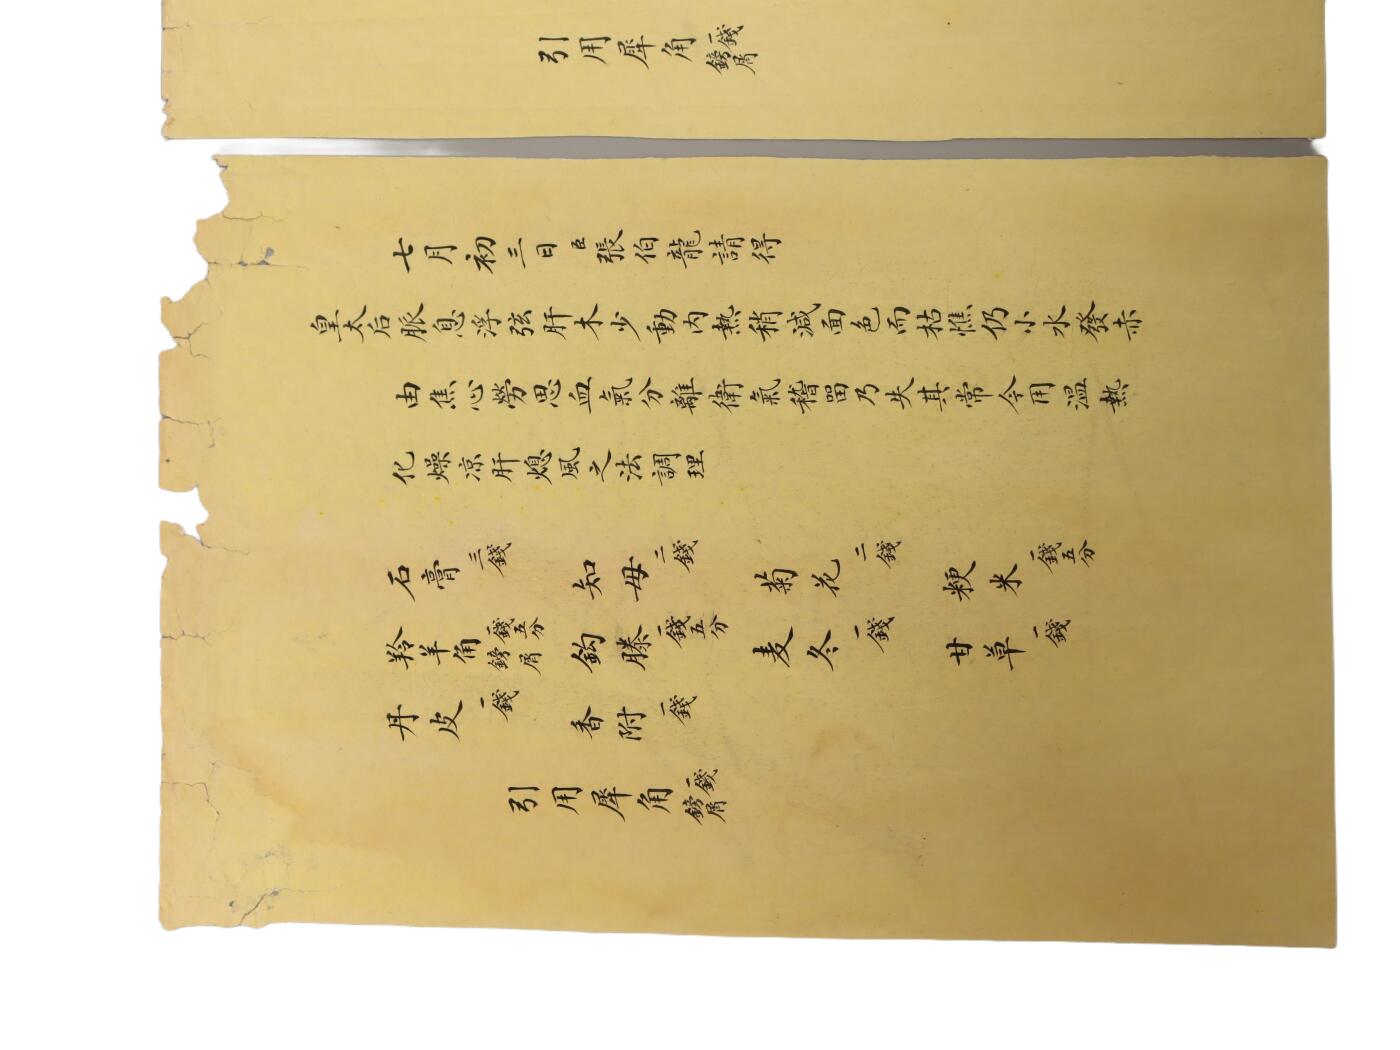 引用犀角一錢鎊屑
七月初三日臣張伯龍請得
皇太后脈息浮弦肝木少動內熱稍減面色而枯憔仍小水發赤
由焦心勞思血氣分離衛氣稽留乃失其常今用溫熱
化燥凉肝熄風之法調理
石膏三錢 知母二錢 菊花二錢 粳米一錢五分
羚羊角一錢五分鎊屑 鈎滕一錢五分 麦冬一錢 甘草一錢
丹皮一錢 香附一錢
引用犀角一錢鎊屑